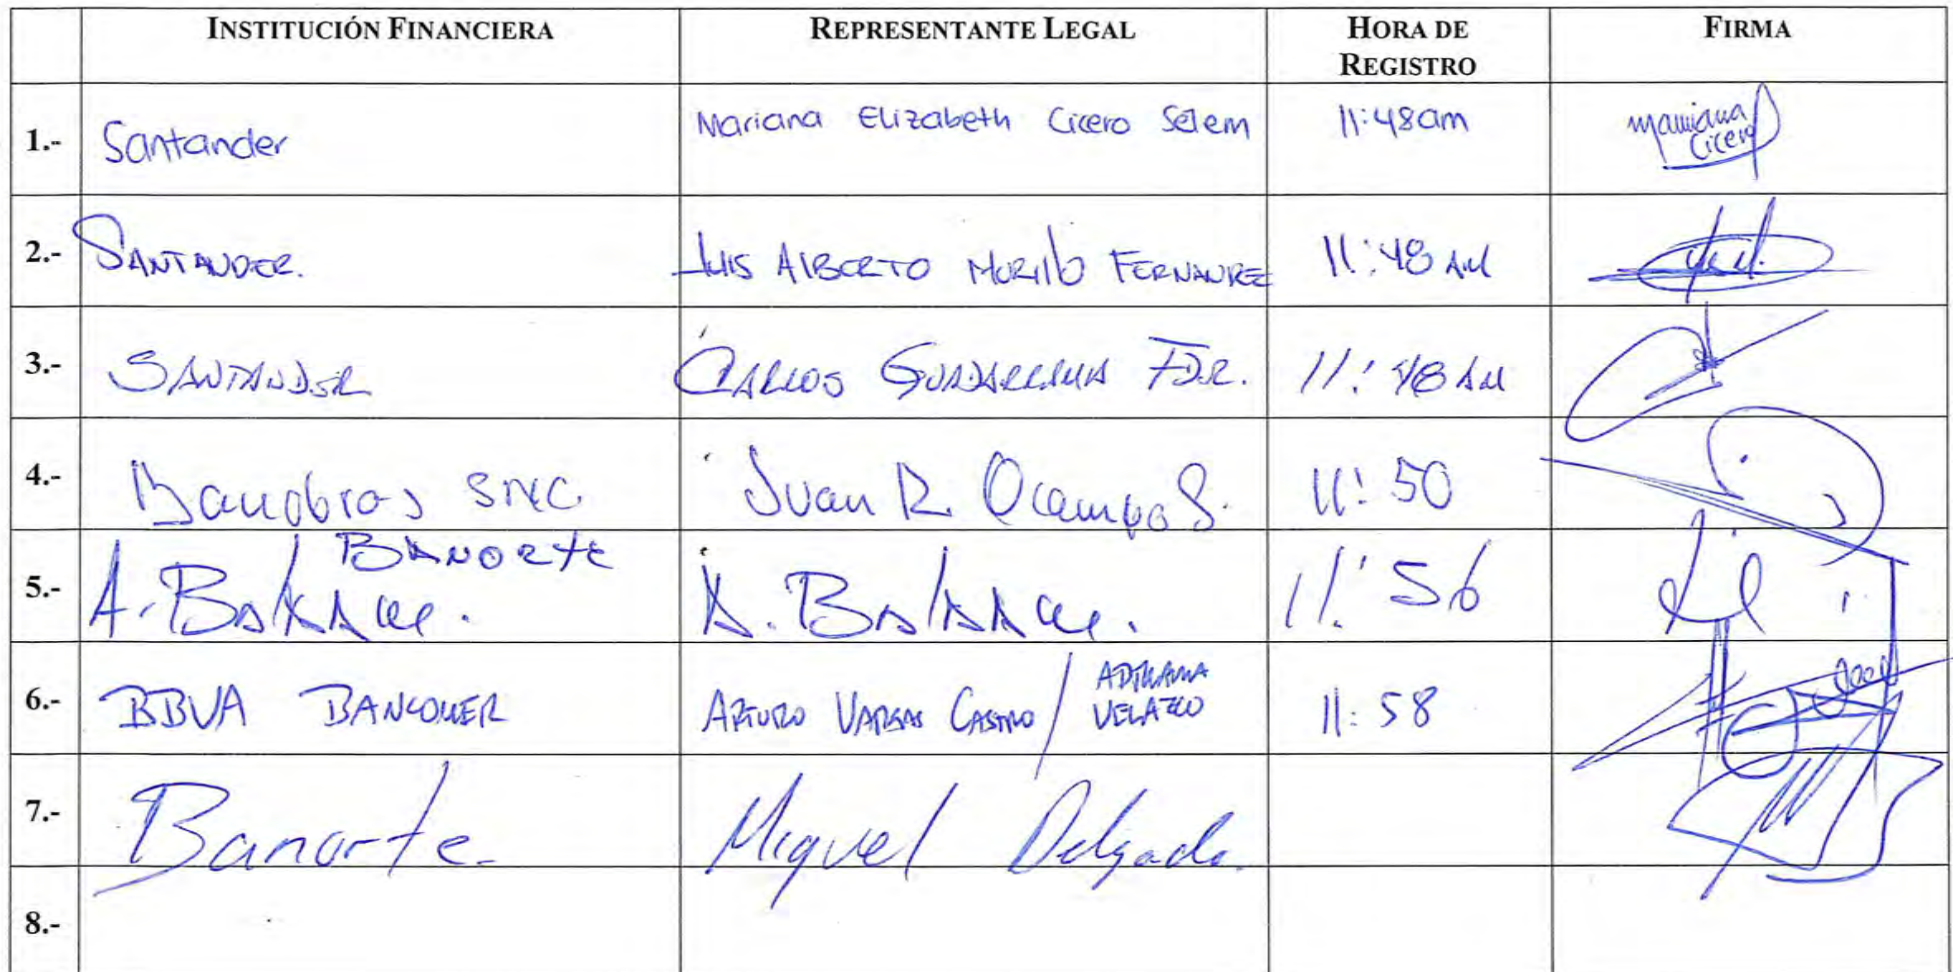 INSTITUCIÓN FINANCIERA REPRESENTANTE LEGAL HORA DE REGISTRO FIRMA
1.- Santander Mariana Elizabeth Cicero Selem 11:48am Mariana Cicero
2.- SANTANDER. LUIS ALBERTO MURILLO FERNANDEZ 11:48 AM
3.- SANTANDER CARLOS GUADARRAMA FDZ. 11:48 AM
4.- Banobras SNC Juan R. Ocampo S. 11:50
5.- A. / BANORTE A. 11:56
6.- BBVA BANCOMER ARTURO VARGAS CASTRO / ADRIANA VELAZCO 11:58
7.- Banorte. Miguel Delgado.
8.-